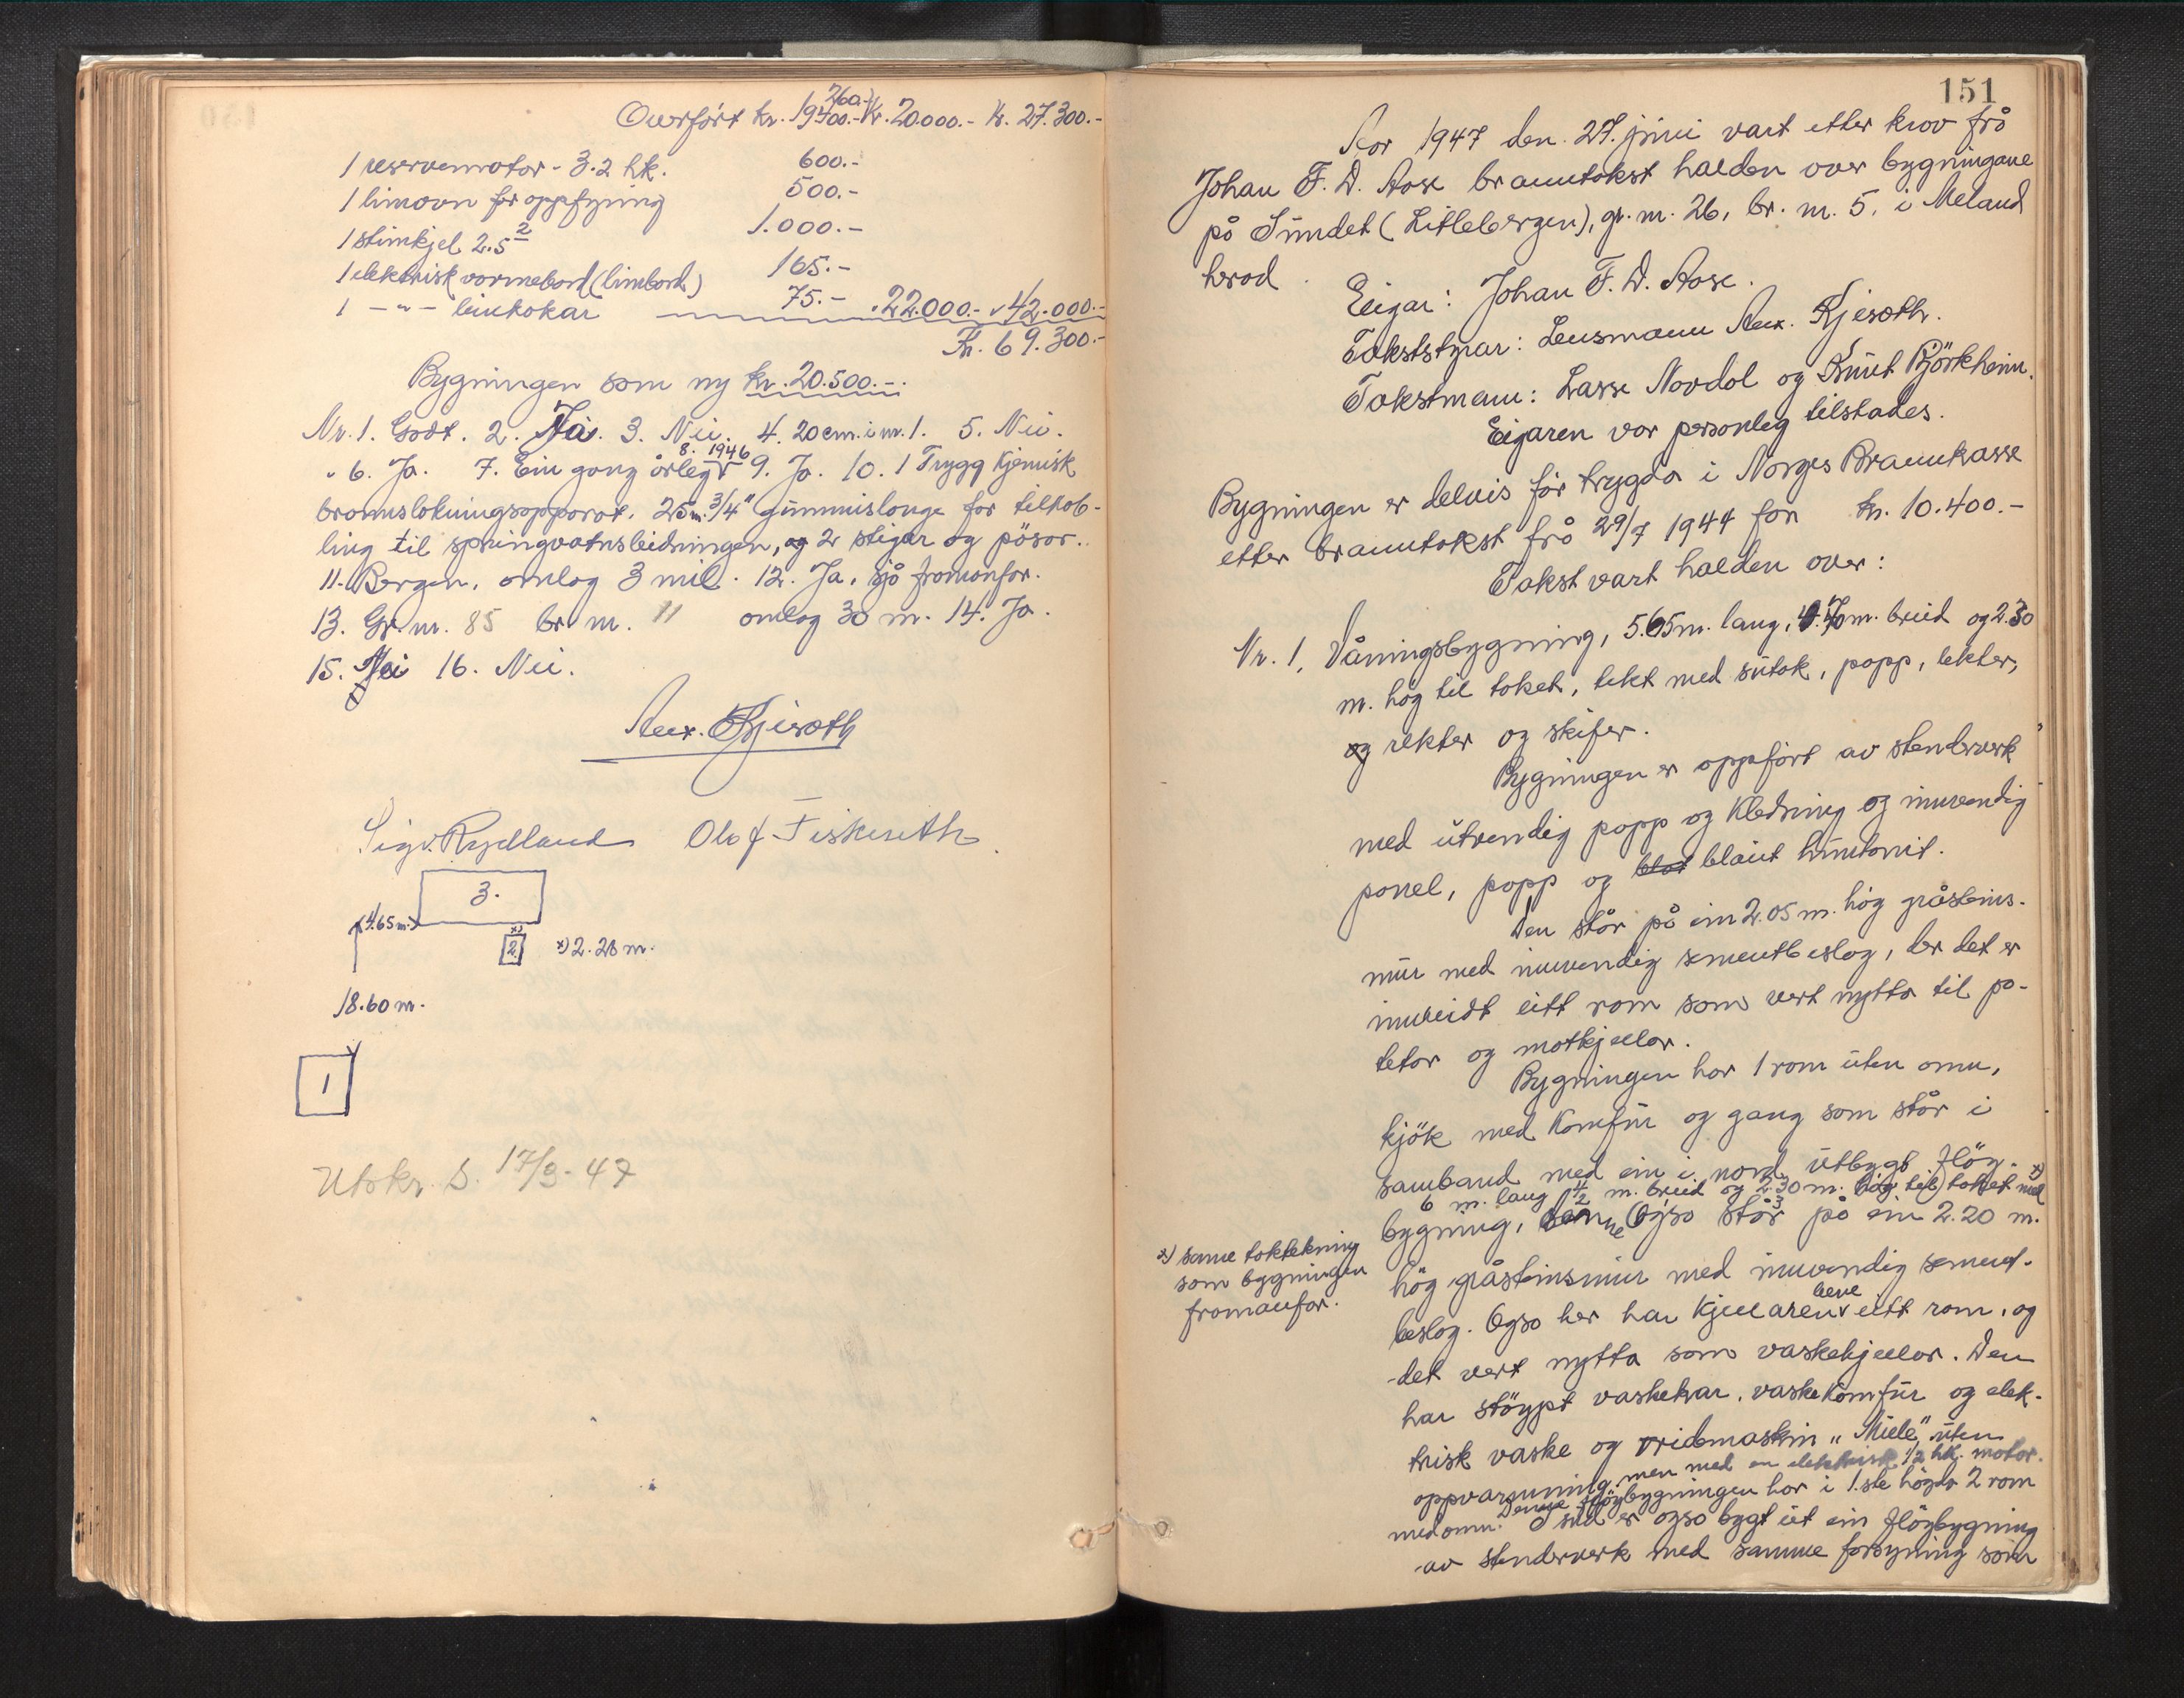 Overført kr. 19400.- kr. 20.000.- kr. 27.300.-
260.-
1 reservemotor - 3.2 hk. 600.-
1 limovn for oppfyring 500.-
1 stimkjel 2.5 2 1.000.-
1 elektrisk varmebord (limbord) 165.-
1 -"- limkokar 75.- " 22.000.- " 42.000.-
Kr. 69.300.-
Bygningen som ny kr. 20.500.-.
Nr. 1. Godt. 2. Ja. 3. Nei. 4. 20 cm. i nr. 1. 5. Nei.
" 6. Ja. 7. Ein gang årleg 8. 1946 9. Ja. 10. 1 Trygg kjemisk
brannslokningsapparat. 25 m. 3/4" gummislange for tilkob-
ling til springvatnsleidningen, og 2 stigar og pösar.
11. Bergen, omlag 3 mil. 12. Ja, sjö framanfor.
13. Gr. nr. 85 br. nr. 11 omlag 30 m. 14. Ja.
15. Nei 16. Nei.
Anx. Kjesæth
Sigv. Rydland Olaf Fiskeseth
3.
4.65 m.
x)
2
x) 2.28 m.
18.60 m.
1
Utskr. S. 17/3-47
151
Aar 1947 den 27. juni vart etter krav frå
Johan F. D. Aase branntakst halden over bygningane
på Sundet (Litlebergen), gr. nr. 26, br. nr. 5, i Meland
herad.
Eigar: Johan F. D. Aase.
Takststyrar: Lensmann Anx. Kjesæth.
Takstmenn: Lasse Nordal og Knut Björkheim.
Eigaren var personleg tilstades.
Bygningen er delvis för trygda i Norges Brannkasse
etter branntakst frå 29/7 1944 for kr. 10.400.-
Takst vart halden over:
Nr. 1. Våningsbygning, 5.65 m. lang, 4.70 m. breid og 2.30
m. hög til taket, tekt med sutak, papp, lekter,
og rekter og skifer.
Bygningen er oppfört av stenderverk
med utvendig papp og kledning og innvendig
panel, papp og blaut huntonit.
Den står på ein 2.05 m. hög gråsteins-
mur med innvendig sementbeslag, der det er
innreidt eitt rom som vert nytta til po-
tetor og matkjellar.
Bygningen har 1 rom uten omn,
kjök med komfur og gang som står i
samband med ein i nord utbygt flöy-
6 m. lang 4 1/2 m. breid og 2.30 m. hög til taket med x)
bygning, denne ogso står på ein 2.20 m.
x) same taktekning
som bygningen
framanfor.
hög gråsteinsmur med innvendig sement-
beslag. Ogso her har kjellaren berre eitt rom, og
det vert nytta som vaskekjellar. Den
har støypt vaskekar, vaskekomfur og elek-
trisk vaske og vridemaskin "Miele" uten
oppvarmning, men med en elektrisk 1/2 hk. motor.
Denne flöybygningen har i 1.ste högda 2 rom
med omn. I sud er ogso bygt ut ein flöybygning
av stenderverk med samme forsyning som